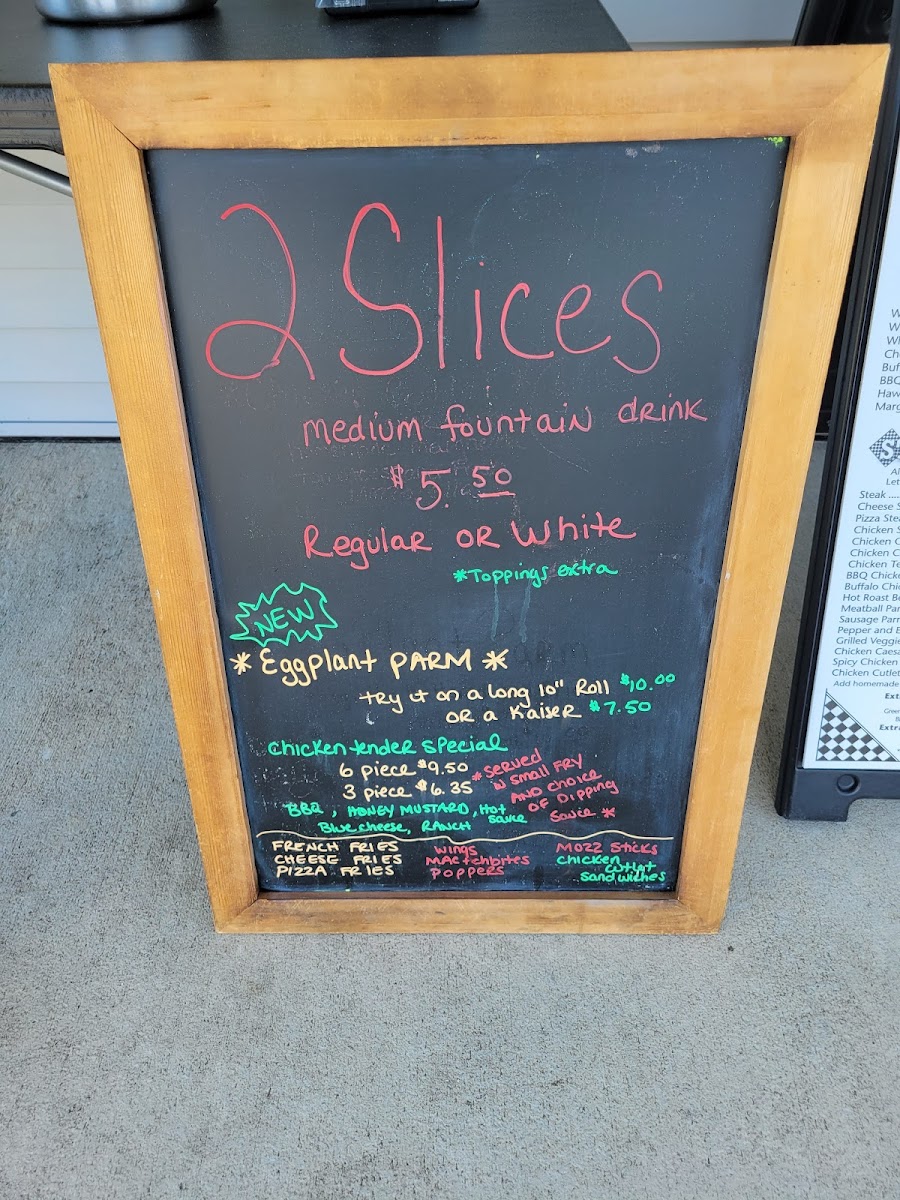 2 Slices
medium fountain drink
$5.50
Regular or White
*Toppings extra
NEW
* Eggplant PARM *
try it on a long 10" Roll $10.00
or a Kaiser $7.50
Chicken tender special
6 piece $9.50
3 piece $6.35
*served
w small FRY
AND choice
OF Dipping
Sauce *
BBQ, HONEY MUSTARD, Hot sauce
Blue cheese, RANCH
FRENCH FRIES
CHEESE FRIES
PIZZA FRIES
WINGS
MAC+chbites
POPPERS
MOZZ Sticks
chicken
cutlet
sandwiches
BBQ
Steak
Cheese
Pizza
Chicken
Chicken
Chicken
Chicken
BBQ
Buffalo
Hot Roast
Meatball
Sausage
Pepper and
Grilled
Chicken
Spicy Chicken
Chicken
Add homemade